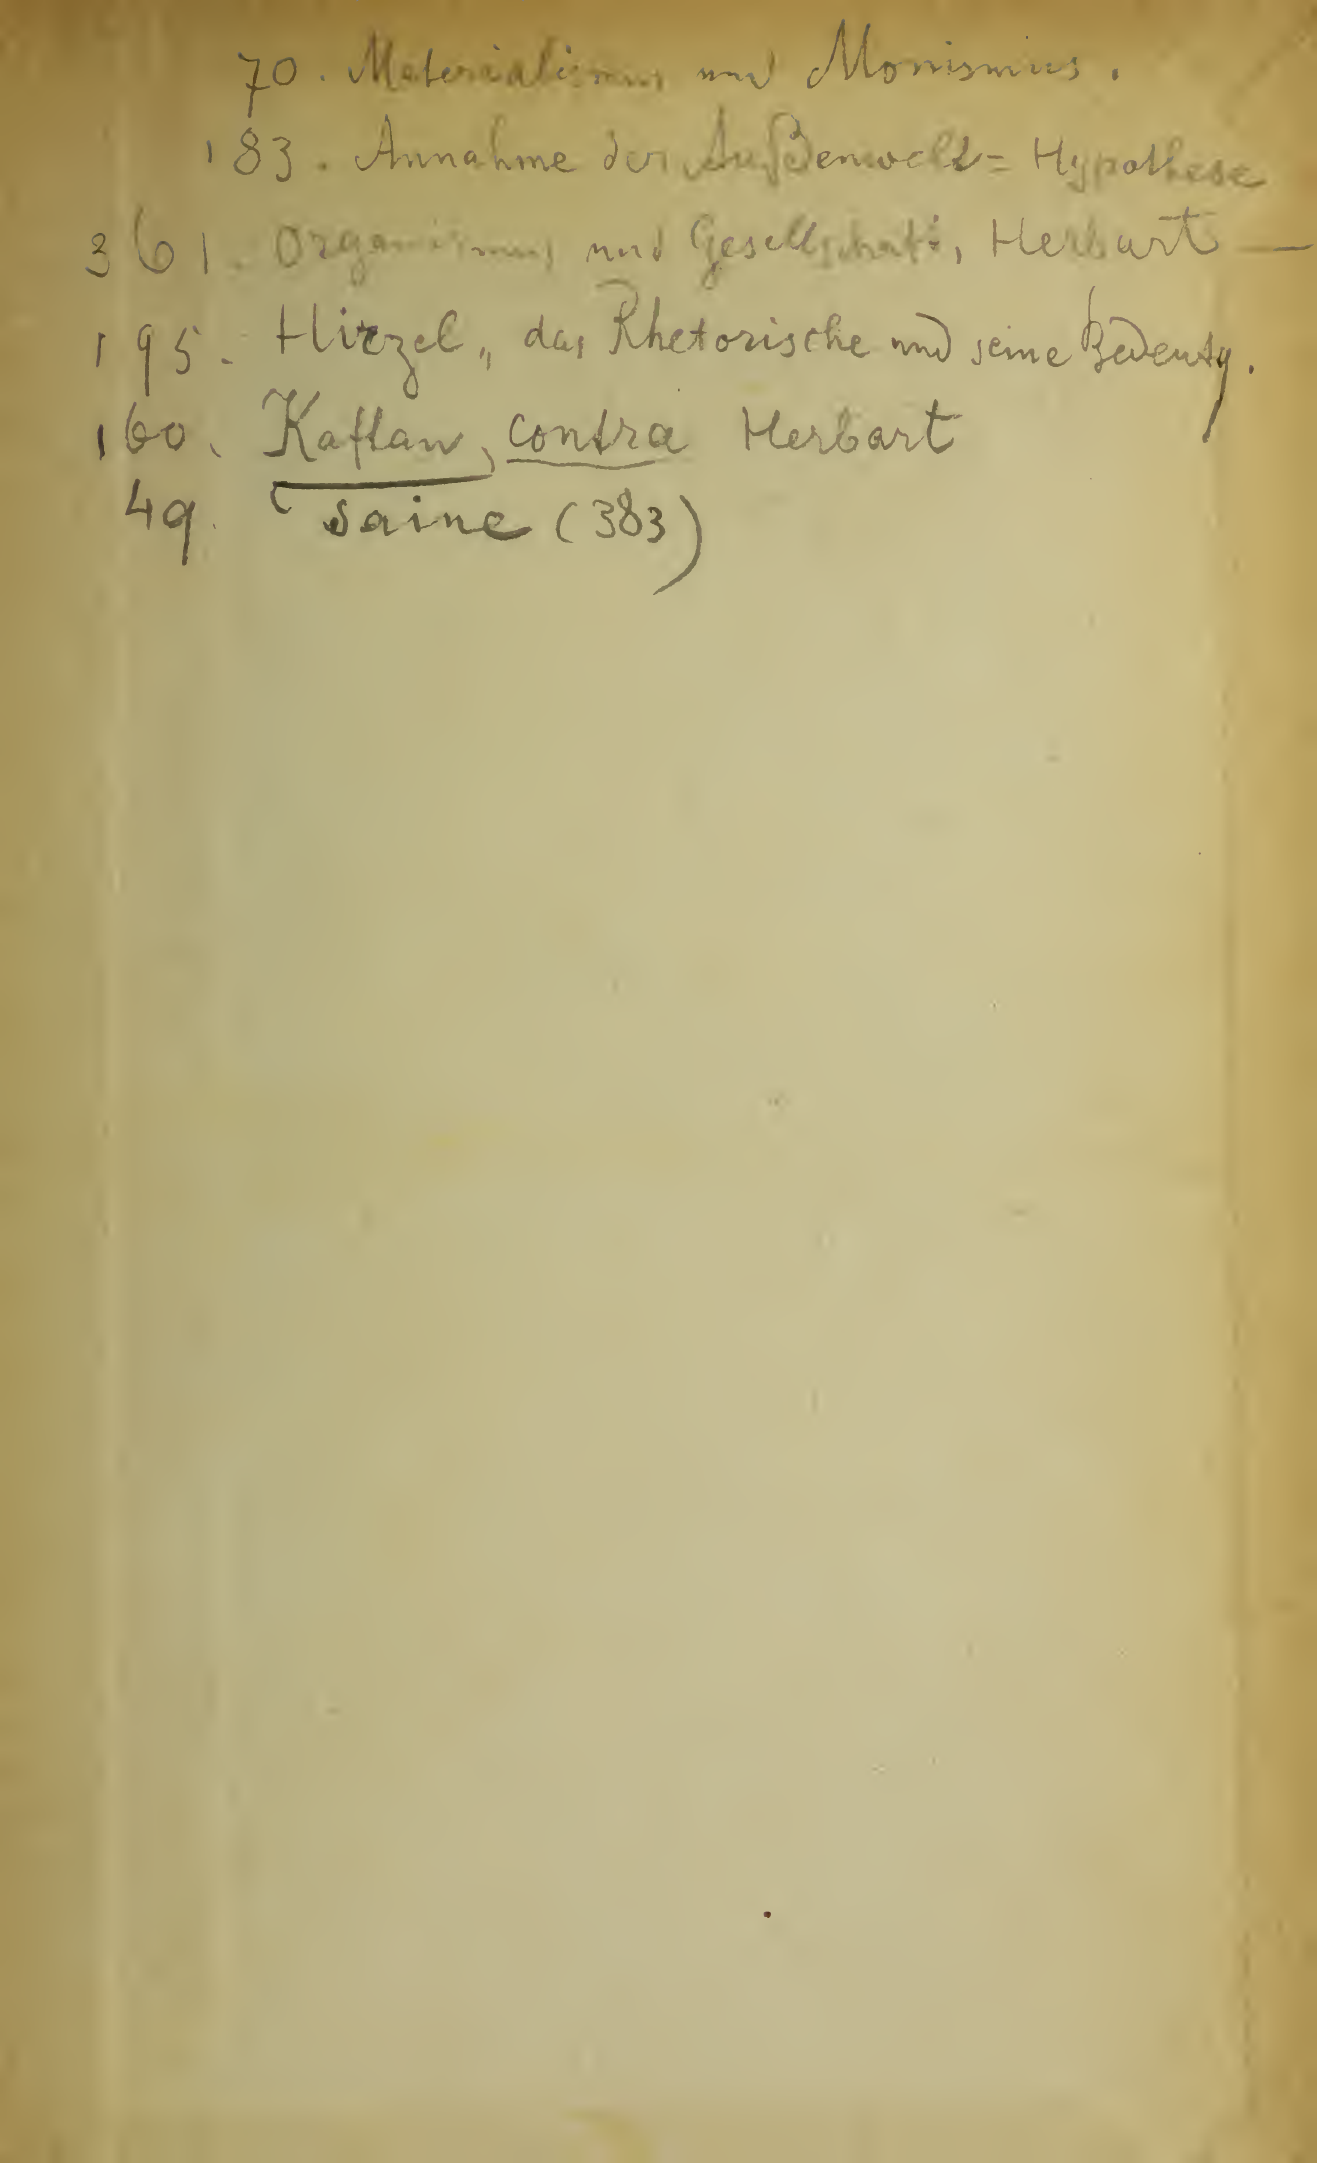 70. Materialismus und Monismus.
183. Annahme der Außenwelt = Hypothese
361. Organismus und Gesellschaft, Herbart —
195. Hirzel, das Rhetorische und seine Bedeutg.
160. Kaftan, contra Herbart
49. Taine (383)